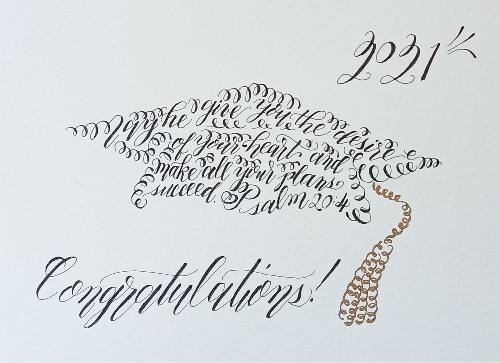 2021
May he give you the desire
of your heart and
make all your plans
succeed. Psalm 20:4
Congratulations!